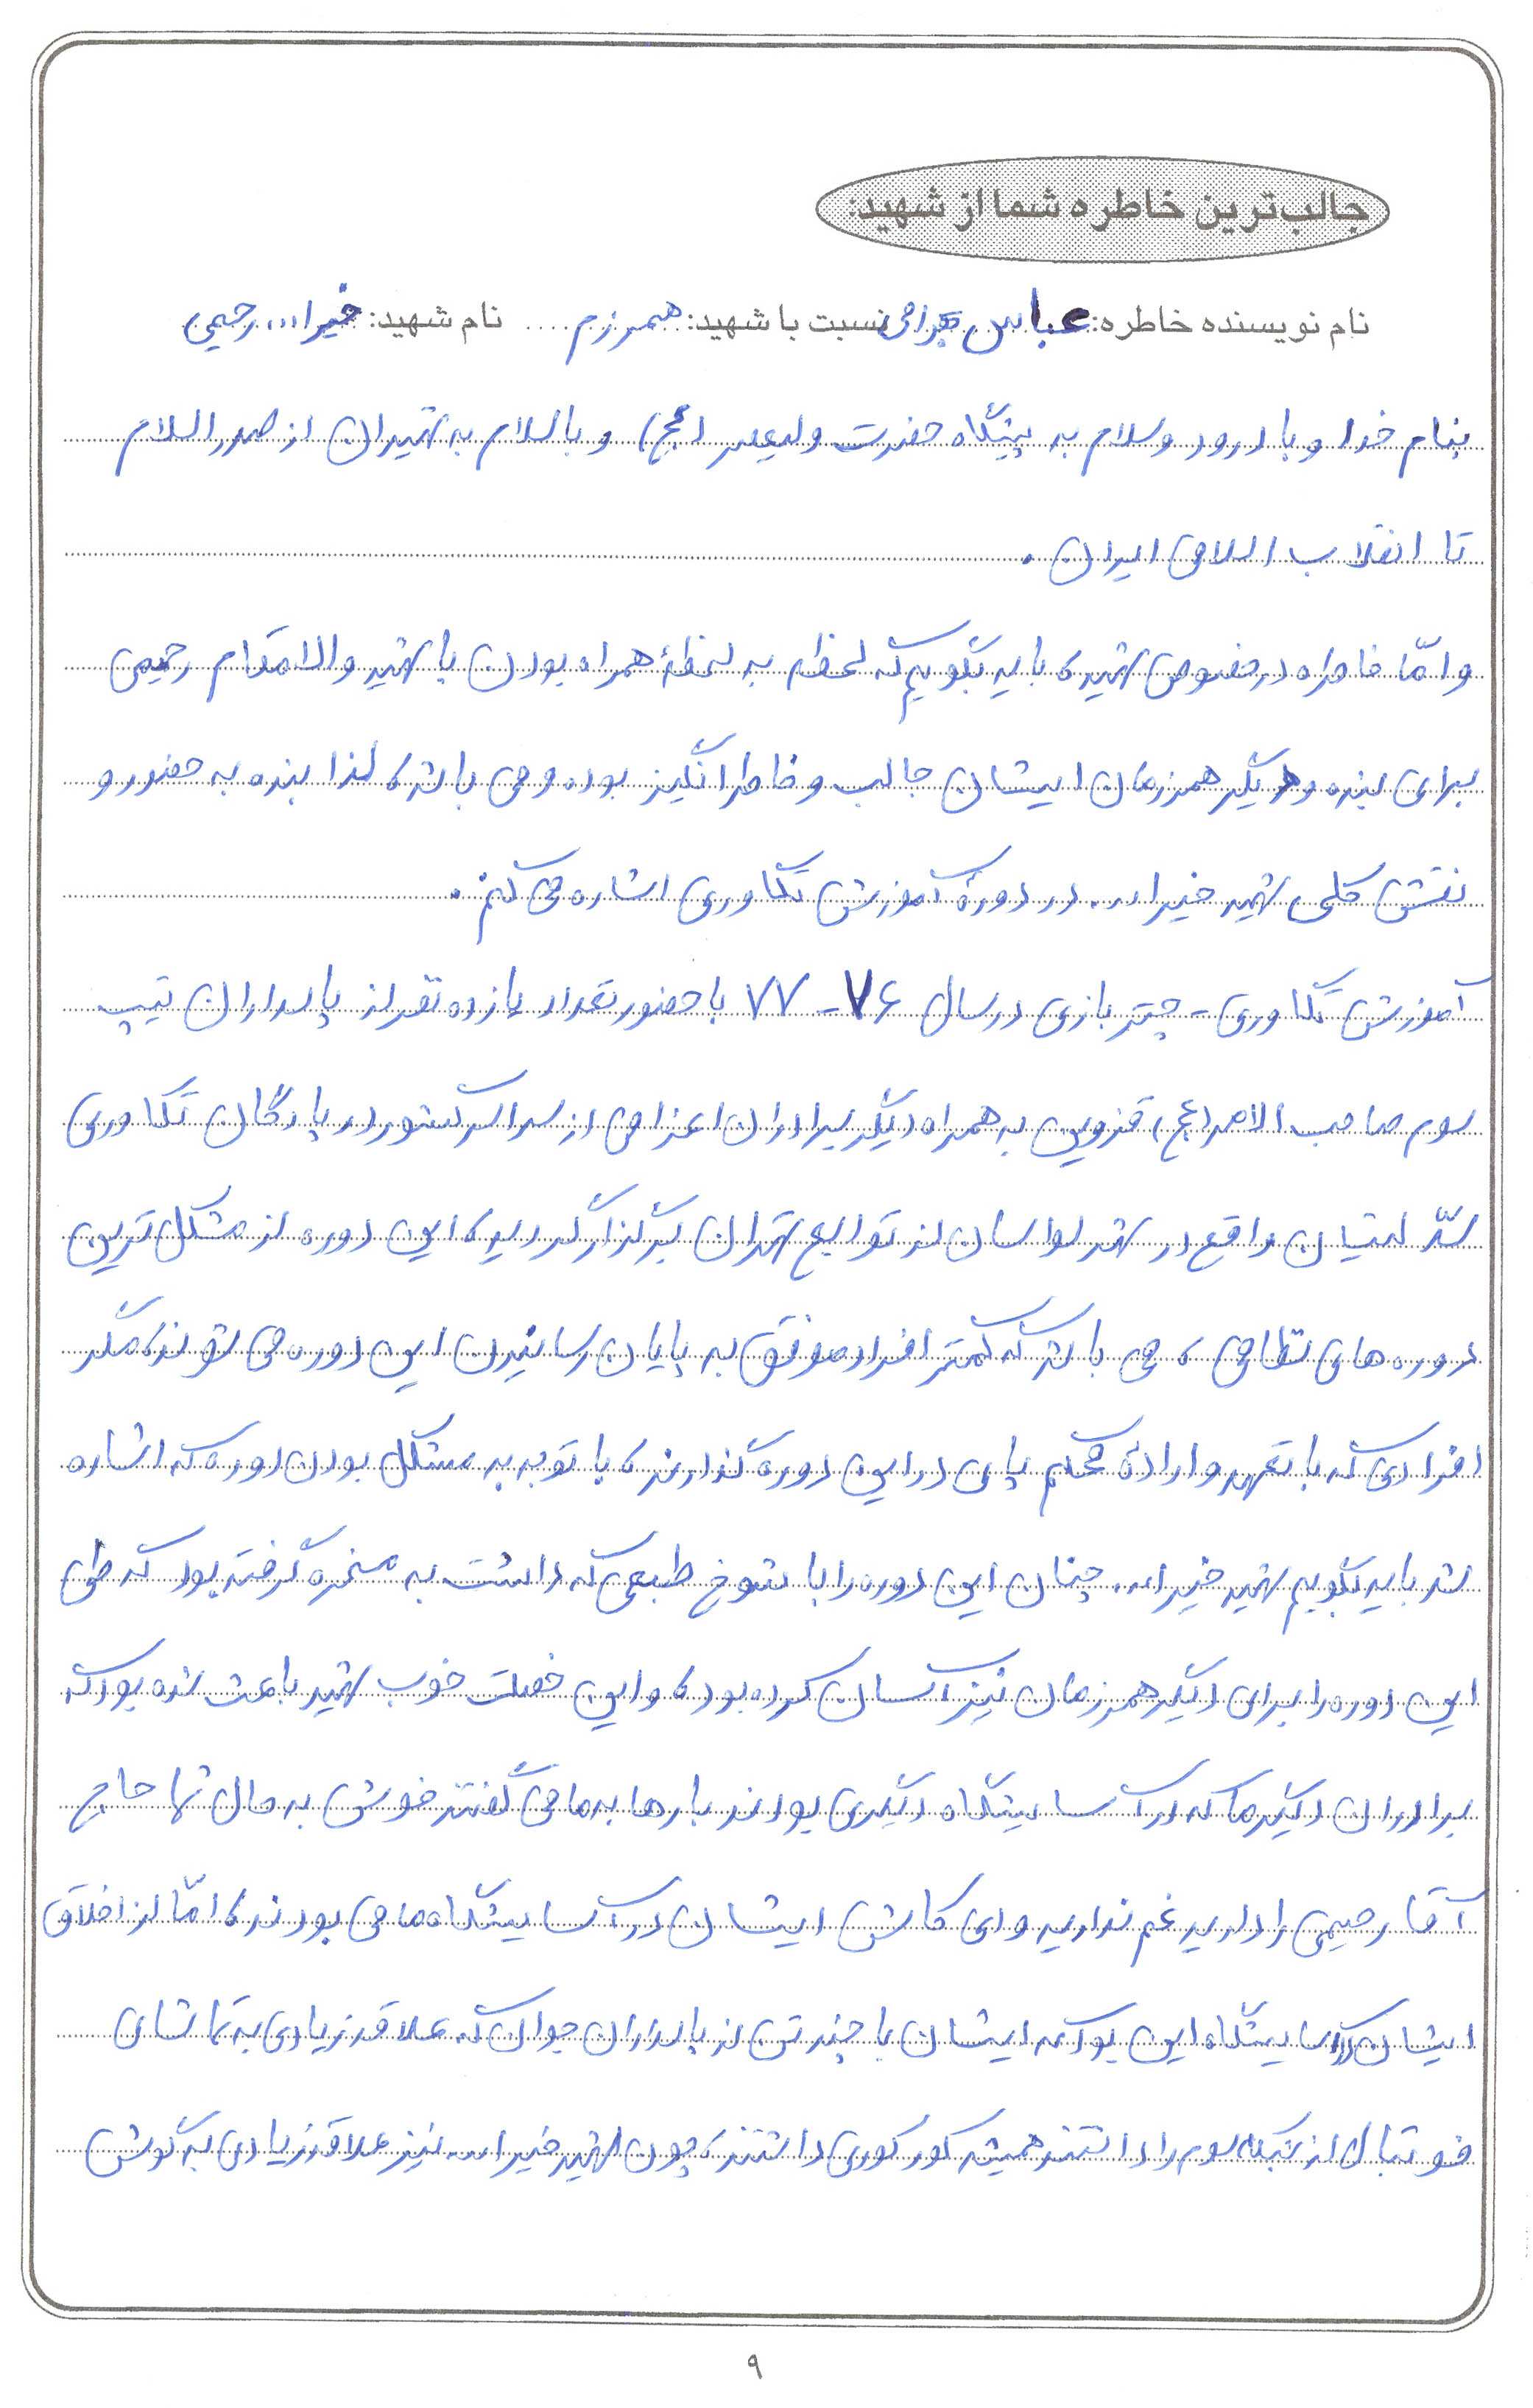 جالب‌ترین خاطره شما از شهید:
نام نویسنده خاطره: عباس نسبت با شهید: همرزم .... نام شهید: خیرا... رحیمی
بنام خدا و با درود و سلام به پیشگاه حضرت ولیعصر (عج) و با سلام به شهیدان از صدر اسلام
تا انقلاب اسلامی ایران .
و امّا خاطره در خصوص شهید، باید بگویم که لحظه به لحظهٔ همراه بودن با شهید والامقام رحیمی
برای بنده و دیگر همرزمان ایشان جالب و خاطرانگیز بوده و می باشد، لذا بنده به حضور و
نقش کلی شهید خیرا... در دورهٔ آموزش تکاوری اشاره می کنم .
آموزش تکاوری - چتربازی در سال ۷۶ - ۷۷ با حضور تعداد یازده نفر از پاسداران تیپ
سوم صاحب الامر (عج) قزوین به همراه دیگر برادران اعزامی از سراسر کشور در پادگان تکاوری
سدّ لتیان واقع در شهر لواسان از توابع تهران برگزار گردید، این دوره از مشکل ترین
دوره های نظامی، می باشد که کمتر افراد موفق به پایان رسانیدن این دوره می شوند، مگر
افرادی که با تعهد و ارادهٔ محکم پای در این دوره گذارند، با توجه به مشکل بودن دوره که اشاره
شد باید بگویم شهید خیرا... چنان این دوره را با شوخ طبعی که داشت به مسخره گرفته بود که طی
این دوره را برای دیگر همرزمان نیز آسان کرده بود، و این خصلت خوب شهید باعث شده بود که
برادران دیگر ما که در آسایشگاه دیگری بودند بارها به ما می گفتند خوش به حال شما حاج
آقا رحیمی را دارید غم ندارید و ای کاش ایشان در آسایشگاه ما می بودند، امّا از اخلاق
ایشان در آسایشگاه این بود که ایشان با چند تن از پاسداران جوان که علاقه زیادی به تماشای
فوتبال از شبکه سوم را داشتند همیشه کورکوری داشتند، چون شهید خیرا... نیز علاقه زیادی به گوش
۹